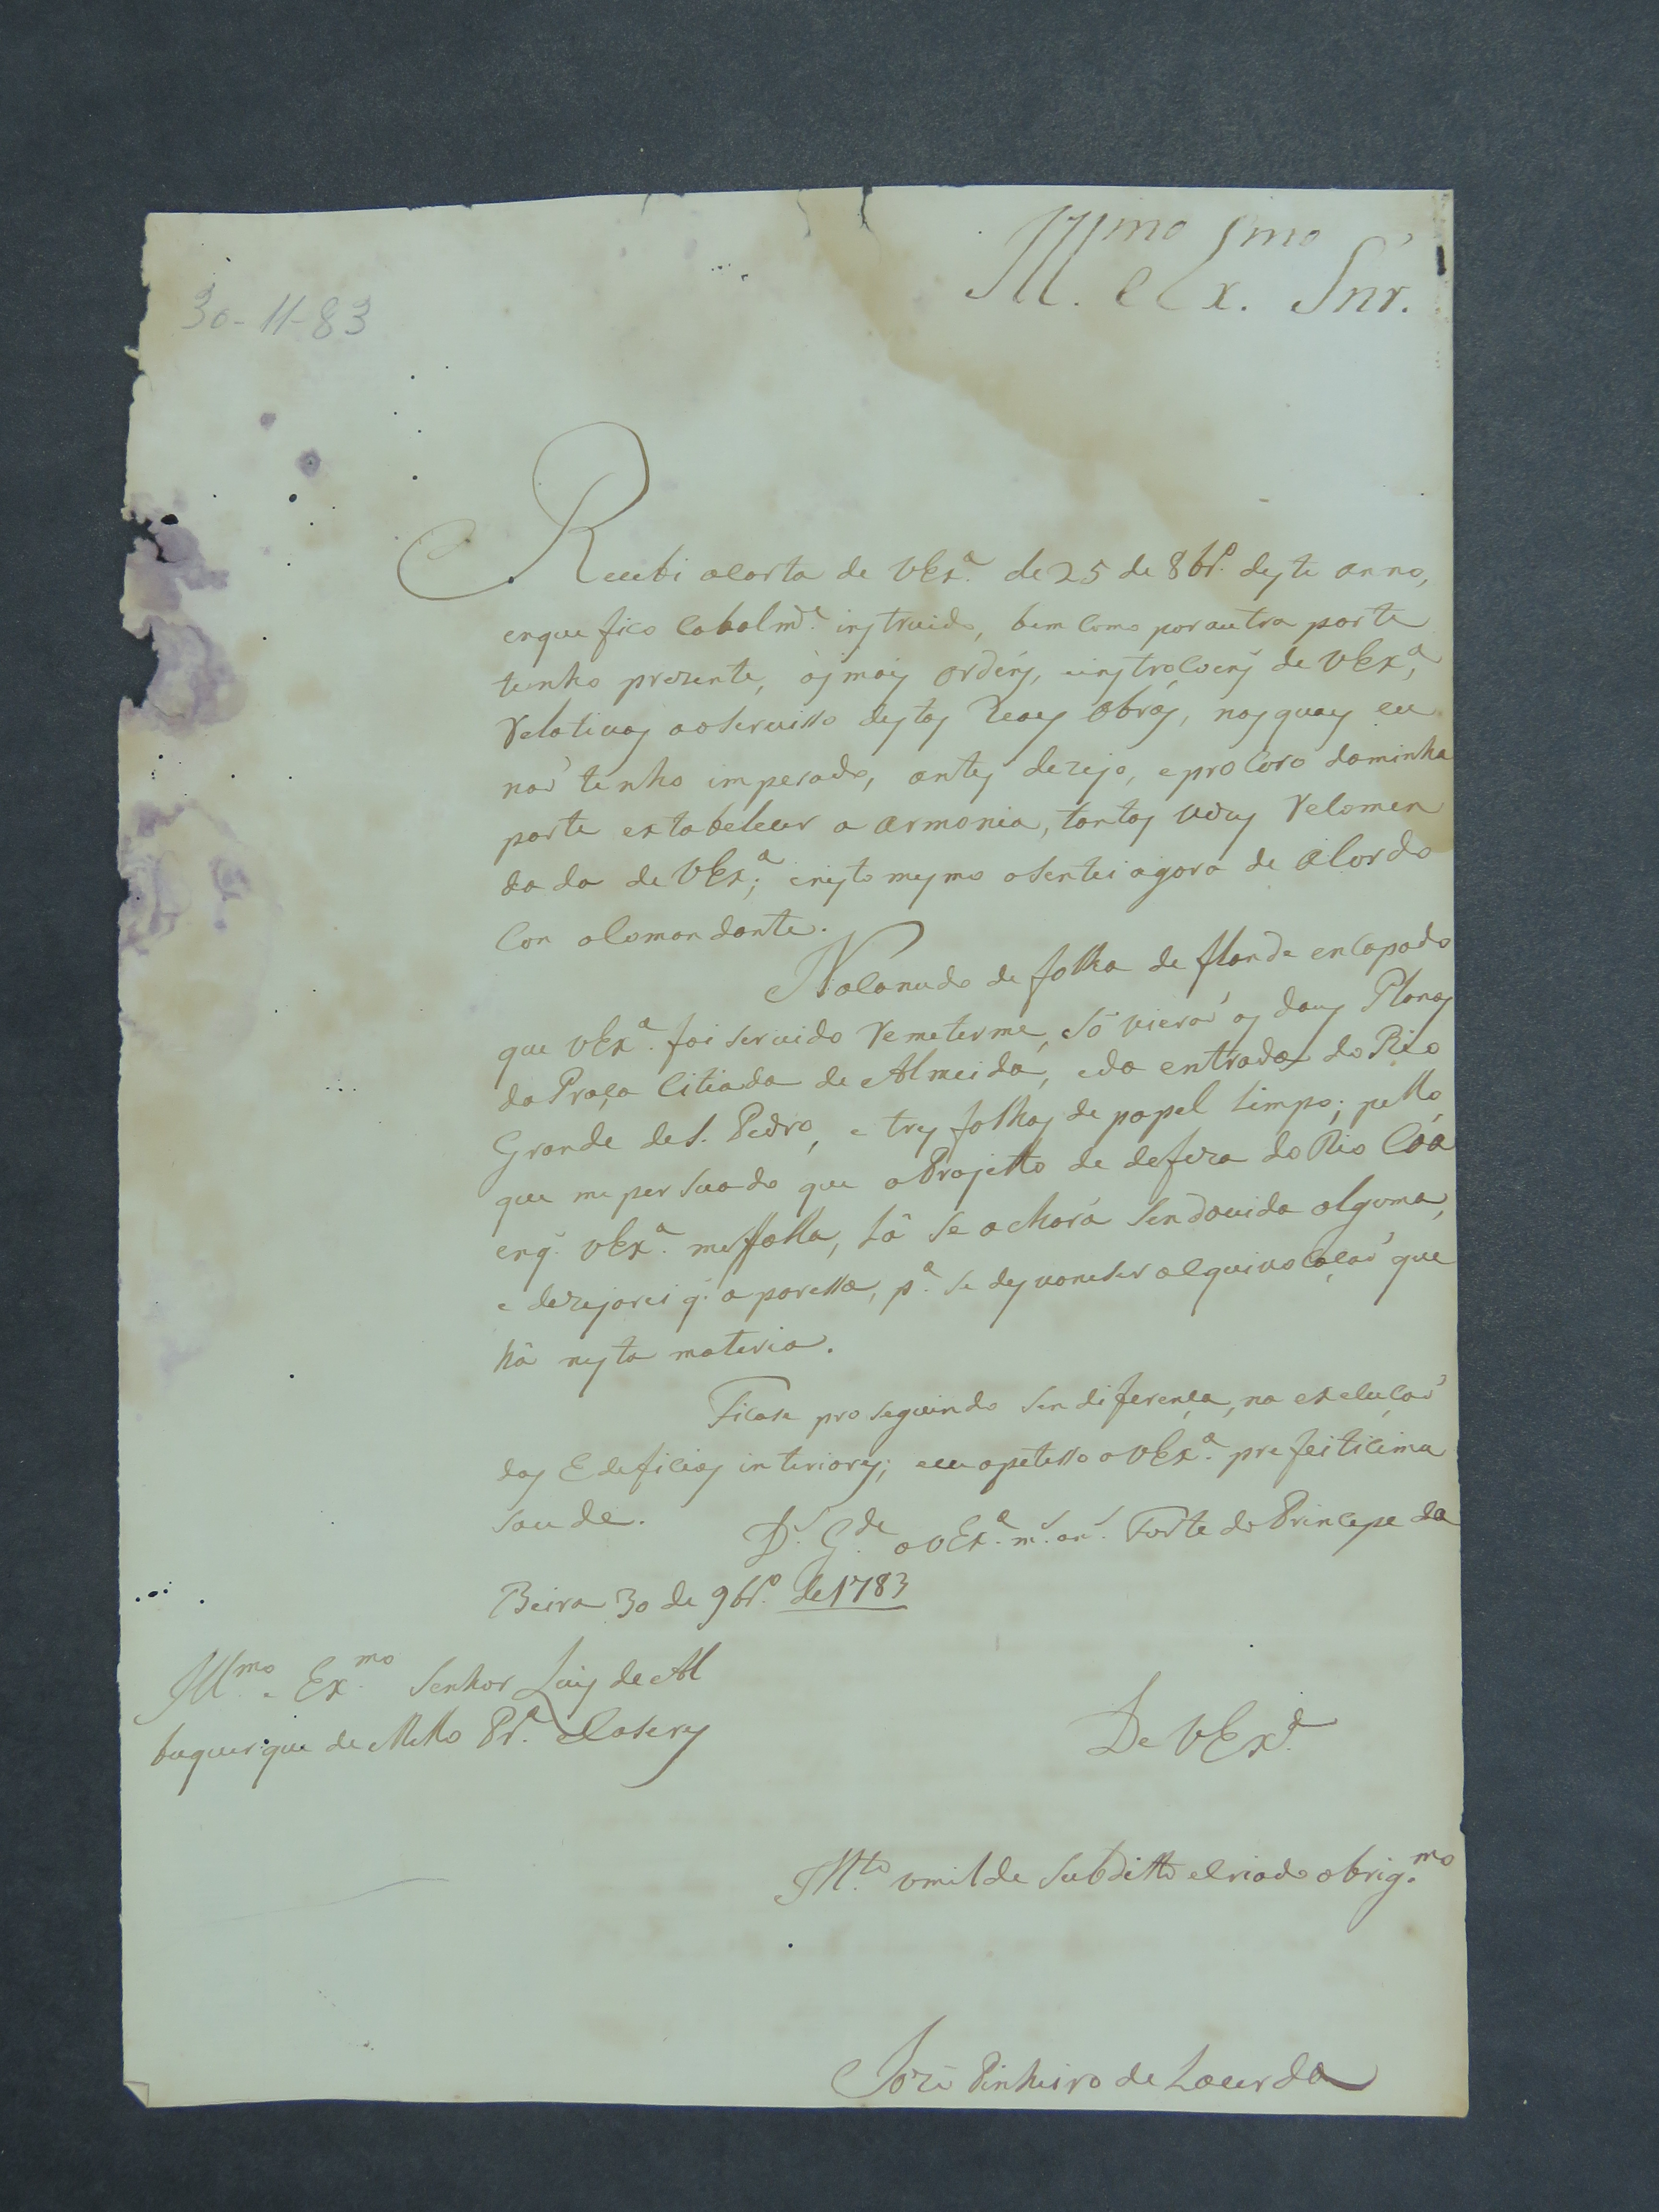 Ill.mo e Ex.mo Snr.
30-11-83
Recebi a carta de VEx.ª de 25 de 8br.º deste anno,
enque fico cabalm.te instruido, bem como por outra parte
tenho prezente, ás mais ordens, einstrocoens de VEx.ª,
Relativas ao servisso destas Reaes Obrás, nas quaes eu
naõ tenho imperado, antes dezejo, e procoro daminha
parte estabelecer a armonia, tantas vezes Recomen
dada de VEx.ª; enesto mesmo asentei agora de acordo
Con o Comandante.
No canudo de folha de flande encapado
que VEx.ª foi servido Remeterme, só vieraõ os dous Planos
da Praça Citiada de Almeida, eda entrada do Rio
Grande de S. Pedro, e tres folhas de papel limpo; pello
que me persuado que o Projetto de defeza do Rio Côa
enq. VEx.ª me falla, lá se achará sen douida alguma,
e dezejarei q. aparessa, p.ª se desvaneser a equivocaçaõ que
há nesta materia.
Ficase proseguindo sen diferença, na execuçaõ
dos Edeficios interiores; eeu apetesso a VEx.ª prefeiticima
saude.
D.s G.de a VEx.ª m.s an.s Forte do Princepe da
Beira 30 de 9br.º de 1783
Ill.mo e Ex.mo Senhor Luis de Al
buquerque de Mello Pr.ª e Caseres
De VEx.ª
M.to umilde Subditto e criado obrig.mo
Jozé Pinheiro de Lacerda